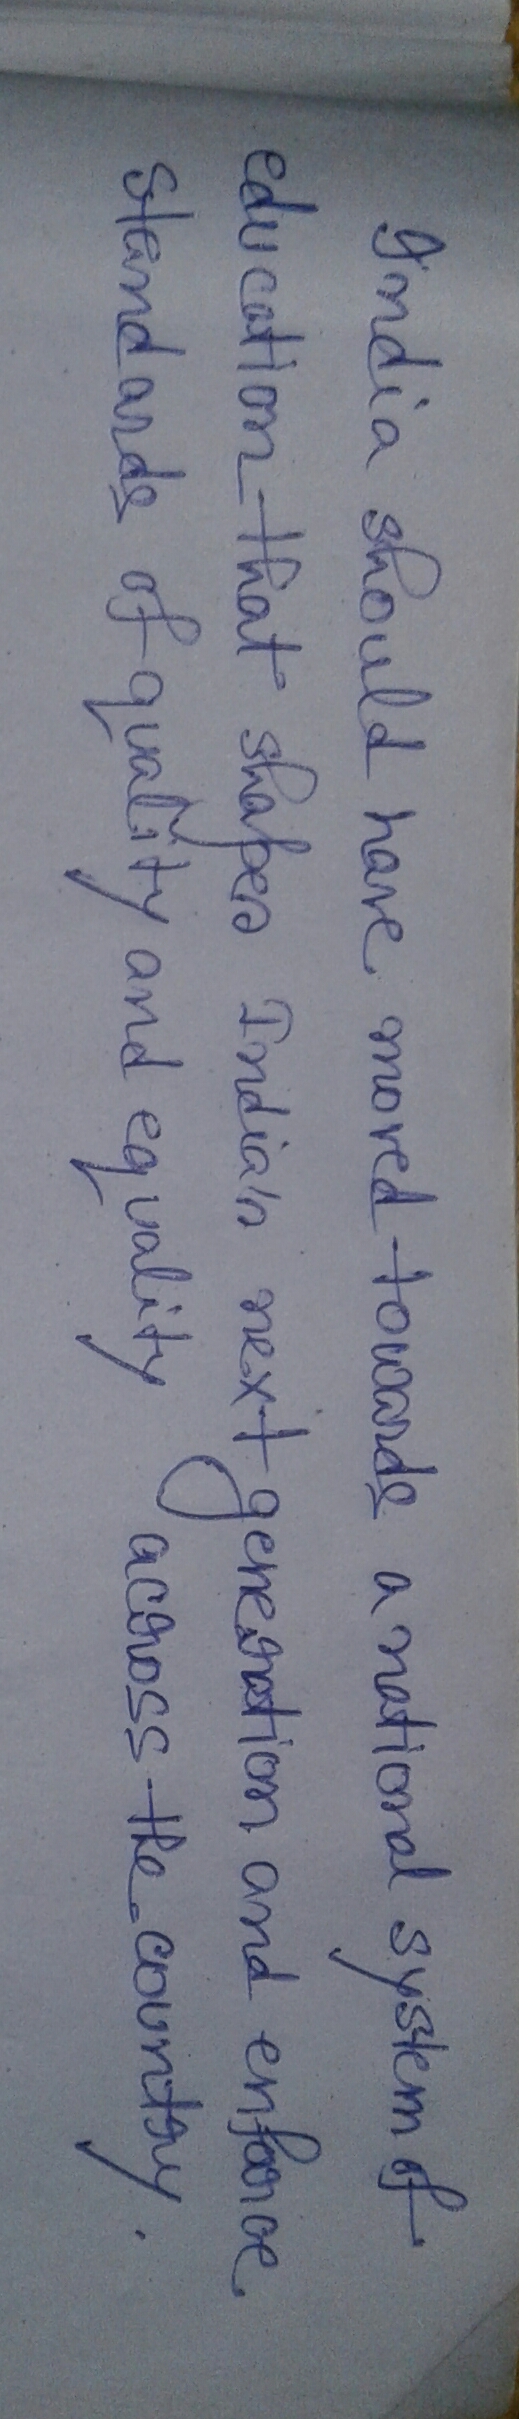 India should have moved towards a national system of
education that shapes India's next generation and enforce
standards of quality and equality across the country.